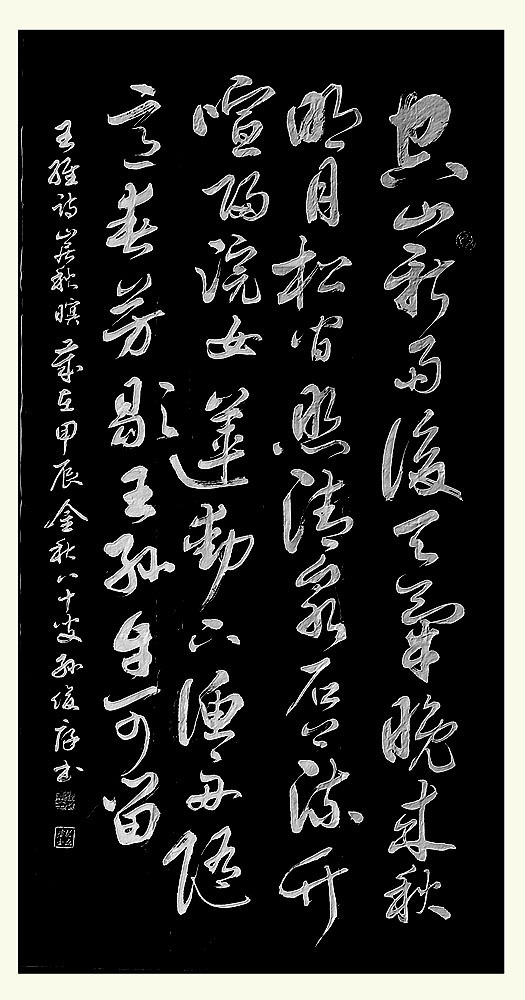 空山新雨後天氣晚來秋
明月松間照清泉石上流竹
喧歸浣女蓮動下漁舟隨
意春芳歇王孫自可留
王維詩山居秋暝歲在甲辰金秋八十叟孫俊書